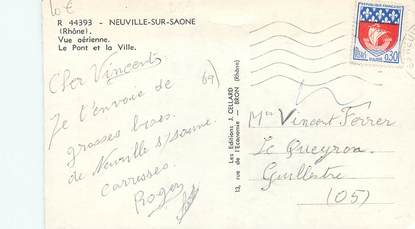 10 €
R 44393 - NEUVILLE-SUR-SAONE
(Rhône).
Vue aérienne.
Le Pont et la Ville.
Cher Vincent
Je t'envoie de
grosses bises
de Neuville s/saone.
carresses.
Roger
69)
Les Editions J. CELLARD
13, rue de l'Economie - BRON (Rhône)
REPUBLIQUE FRANCAISE
POSTES
PARIS
0,30
Vincent Ferrer
Le Queyron
Guillestre
(05)